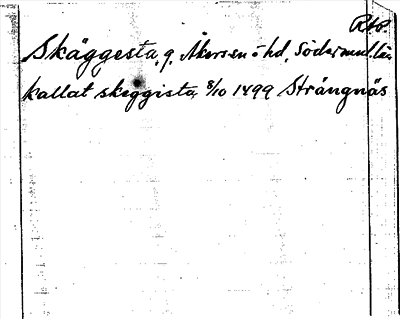 Rbp.
Skäggesta, g. Åkers en-ö hd, Södermanl. län
kallat skeggista, 8/10 1499 Strängnäs